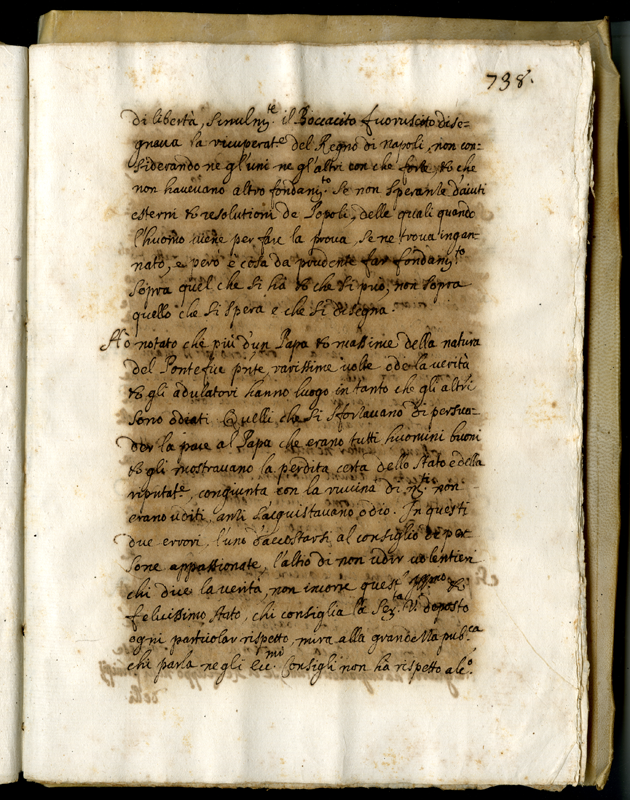 738.
di libertà, simulm.te il Boccacito fuoruscito dise-
gnava la ricuperat.e del Regno di Napoli, non con-
siderando ne gl'uni ne gl'altri con che forte, & che
non havevano altro fondam.to se non speranze d'aiuti
esterni & resolutioni de Popoli, delle quali quando
l'huomo viene per fare la prova, se ne trova ingan-
nato, e però è cosa da prudente far fondam.to
sopra quel che si hà & che si può, non sopra
quello che si spera e che si disegna.
Hò notato che più d'un Papa & massime della natura
del Pontefice pñte rarissime volte ode la verità
& gli adulatori hanno luogo in tanto che gli altri
sono odiati. Quelli che si sforzavano di persua-
der la pace al Papa che erano tutti huomini buoni
& gli mostravano la perdita certa dello Stato e della
reputat.e, congiunta con la ruina di m.ti non
erano uditi, anzi s'acquistavano odio. In questi
due errori, l'uno d'accostarsi al consiglio di per
sone appassionate, l'altro di non udir volentieri
chi dice la verità, non incorre quest'
felicissimo stato, chi consiglia la Ser.tà V.ã deposto
ogni particolar rispetto, mira alla grandezza pub.ca
chi parla negli ecc.mi Consigli non hà rispetto alc.o